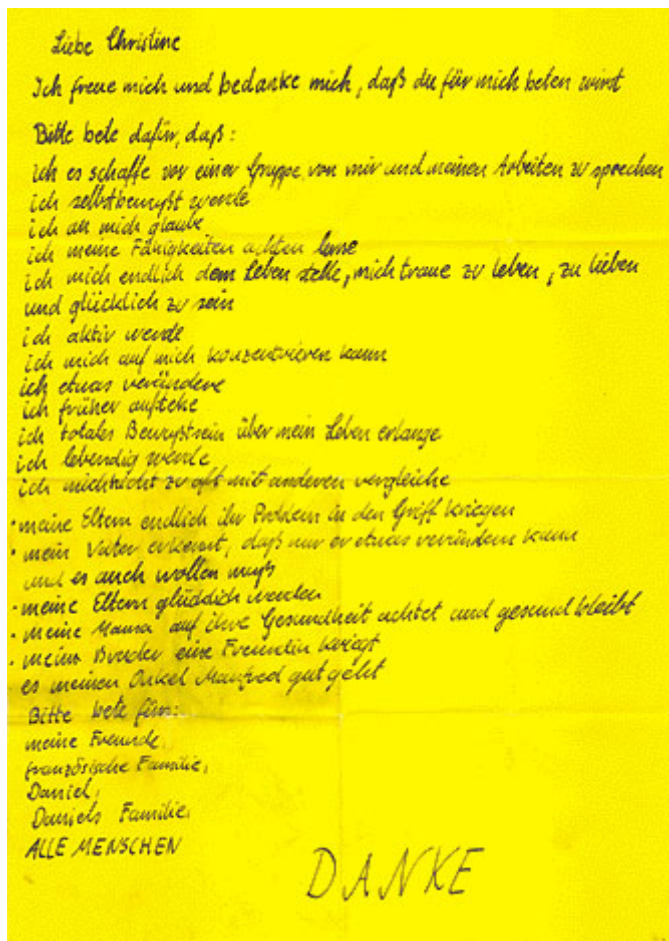 Liebe Christine
Ich freue mich und bedanke mich, daß du für mich beten wirst
Bitte bete dafür, daß:
ich es schaffe vor einer Gruppe von mir und meinen Arbeiten zu sprechen
ich selbstbewußt werde
ich an mich glaube
ich meine Fähigkeiten achten lerne
ich mich endlich dem Leben stelle, mich traue zu leben, zu lieben
und glücklich zu sein
ich aktiv werde
ich mich auf mich konzentrieren kann
ich etwas verändere
ich früher aufstehe
ich totales Bewußtsein über mein Leben erlange
ich lebendig werde
ich mich nicht zu oft mit anderen vergleiche
• meine Eltern endlich ihr Problem in den Griff kriegen
• mein Vater erkennt, daß nur er etwas verändern kann
und es auch wollen muß
• meine Eltern glücklich werden
• meine Mama auf ihre Gesundheit achtet und gesund bleibt
• mein Bruder eine Freundin kriegt
es meinen Onkel Manfred gut geht
Bitte bete für:
meine Freunde,
französische Familie,
Daniel,
Daniels Familie,
ALLE MENSCHEN
DANKE